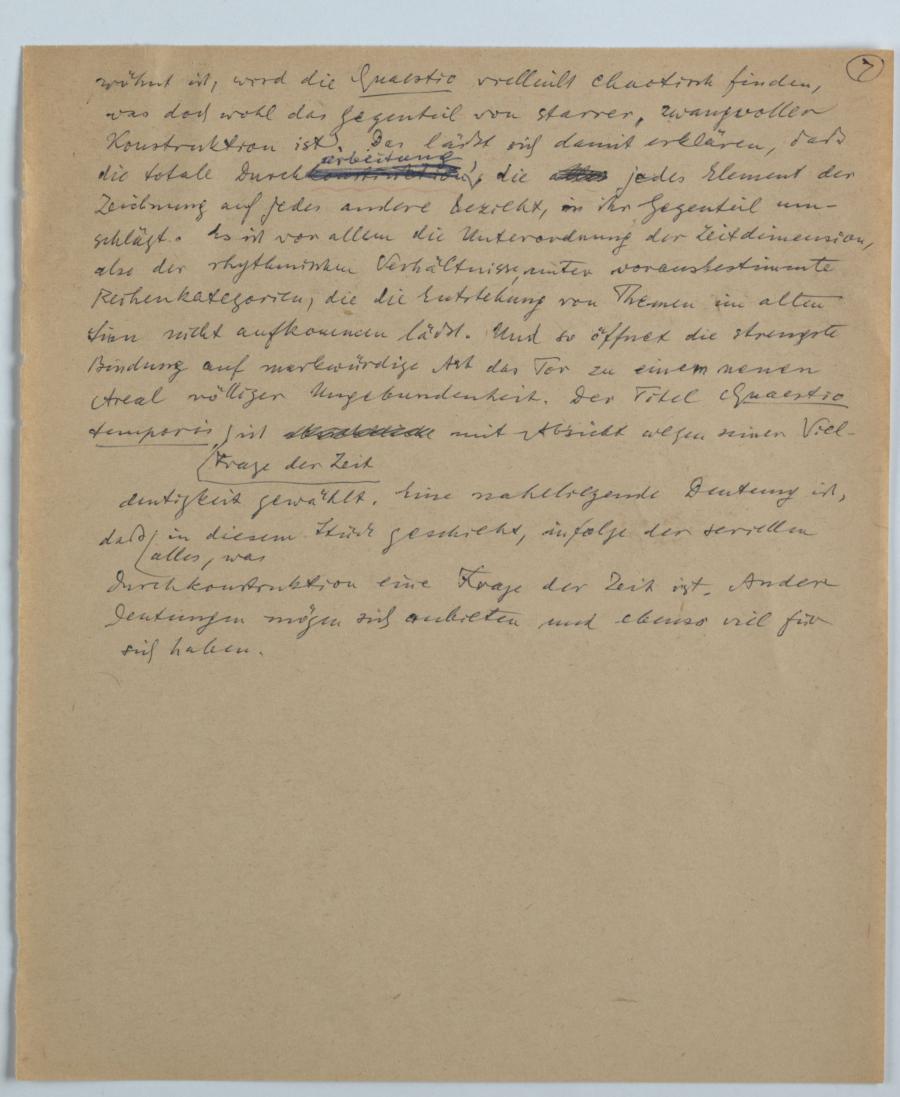 7
wöhnt ist, wird die Quaestio vielleicht chaotisch finden,
was doch wohl das Gegenteil von starrer, zwangvoller
Konstruktion ist. Das lässt sich damit erklären, dass
arbeitung
die totale Durch, die jedes Element der
Zeichnung auf jedes andere bezieht, in ihr Gegenteil um-
schlägt. Es ist vor allem die Unterordnung der Zeitdimension,
also der rhythmischen Verhältnisse, unter vorausbestimmte
Reihenkategorien, die die Entstehung von Themen im alten
Sinn nicht aufkommen lässt. Und so öffnet die strengste
Bindung auf merkwürdige Art das Tor zu einem neuen
Areal völliger Ungebundenheit. Der Titel Quaestio
temporis, ist mit Absicht wegen seiner Viel-
Frage der Zeit
deutigkeit gewählt. Eine naheliegende Deutung ist,
dass in diesem Stück geschieht, infolge der seriellen
alles, was
Durchkonstruktion eine Frage der Zeit ist. Andere
Deutungen mögen sich anbieten und ebenso viel für
sich haben.